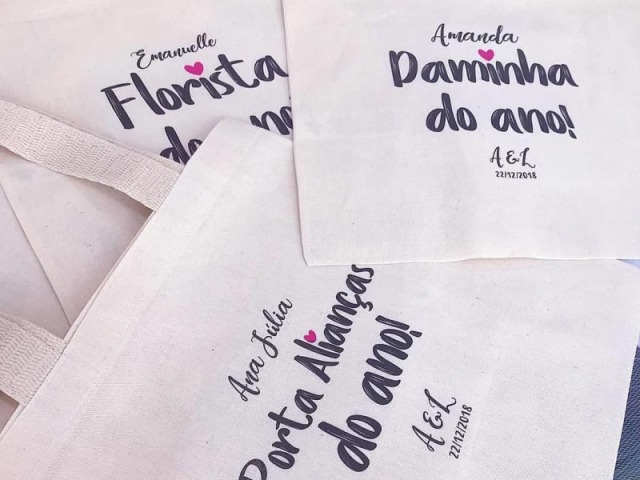 Emanuelle
Florista
Amanda
Daminha
do ano!
A & L
22/12/2018
Ana Júlia
Porta Alianças
do ano!
A & L
22/12/2018